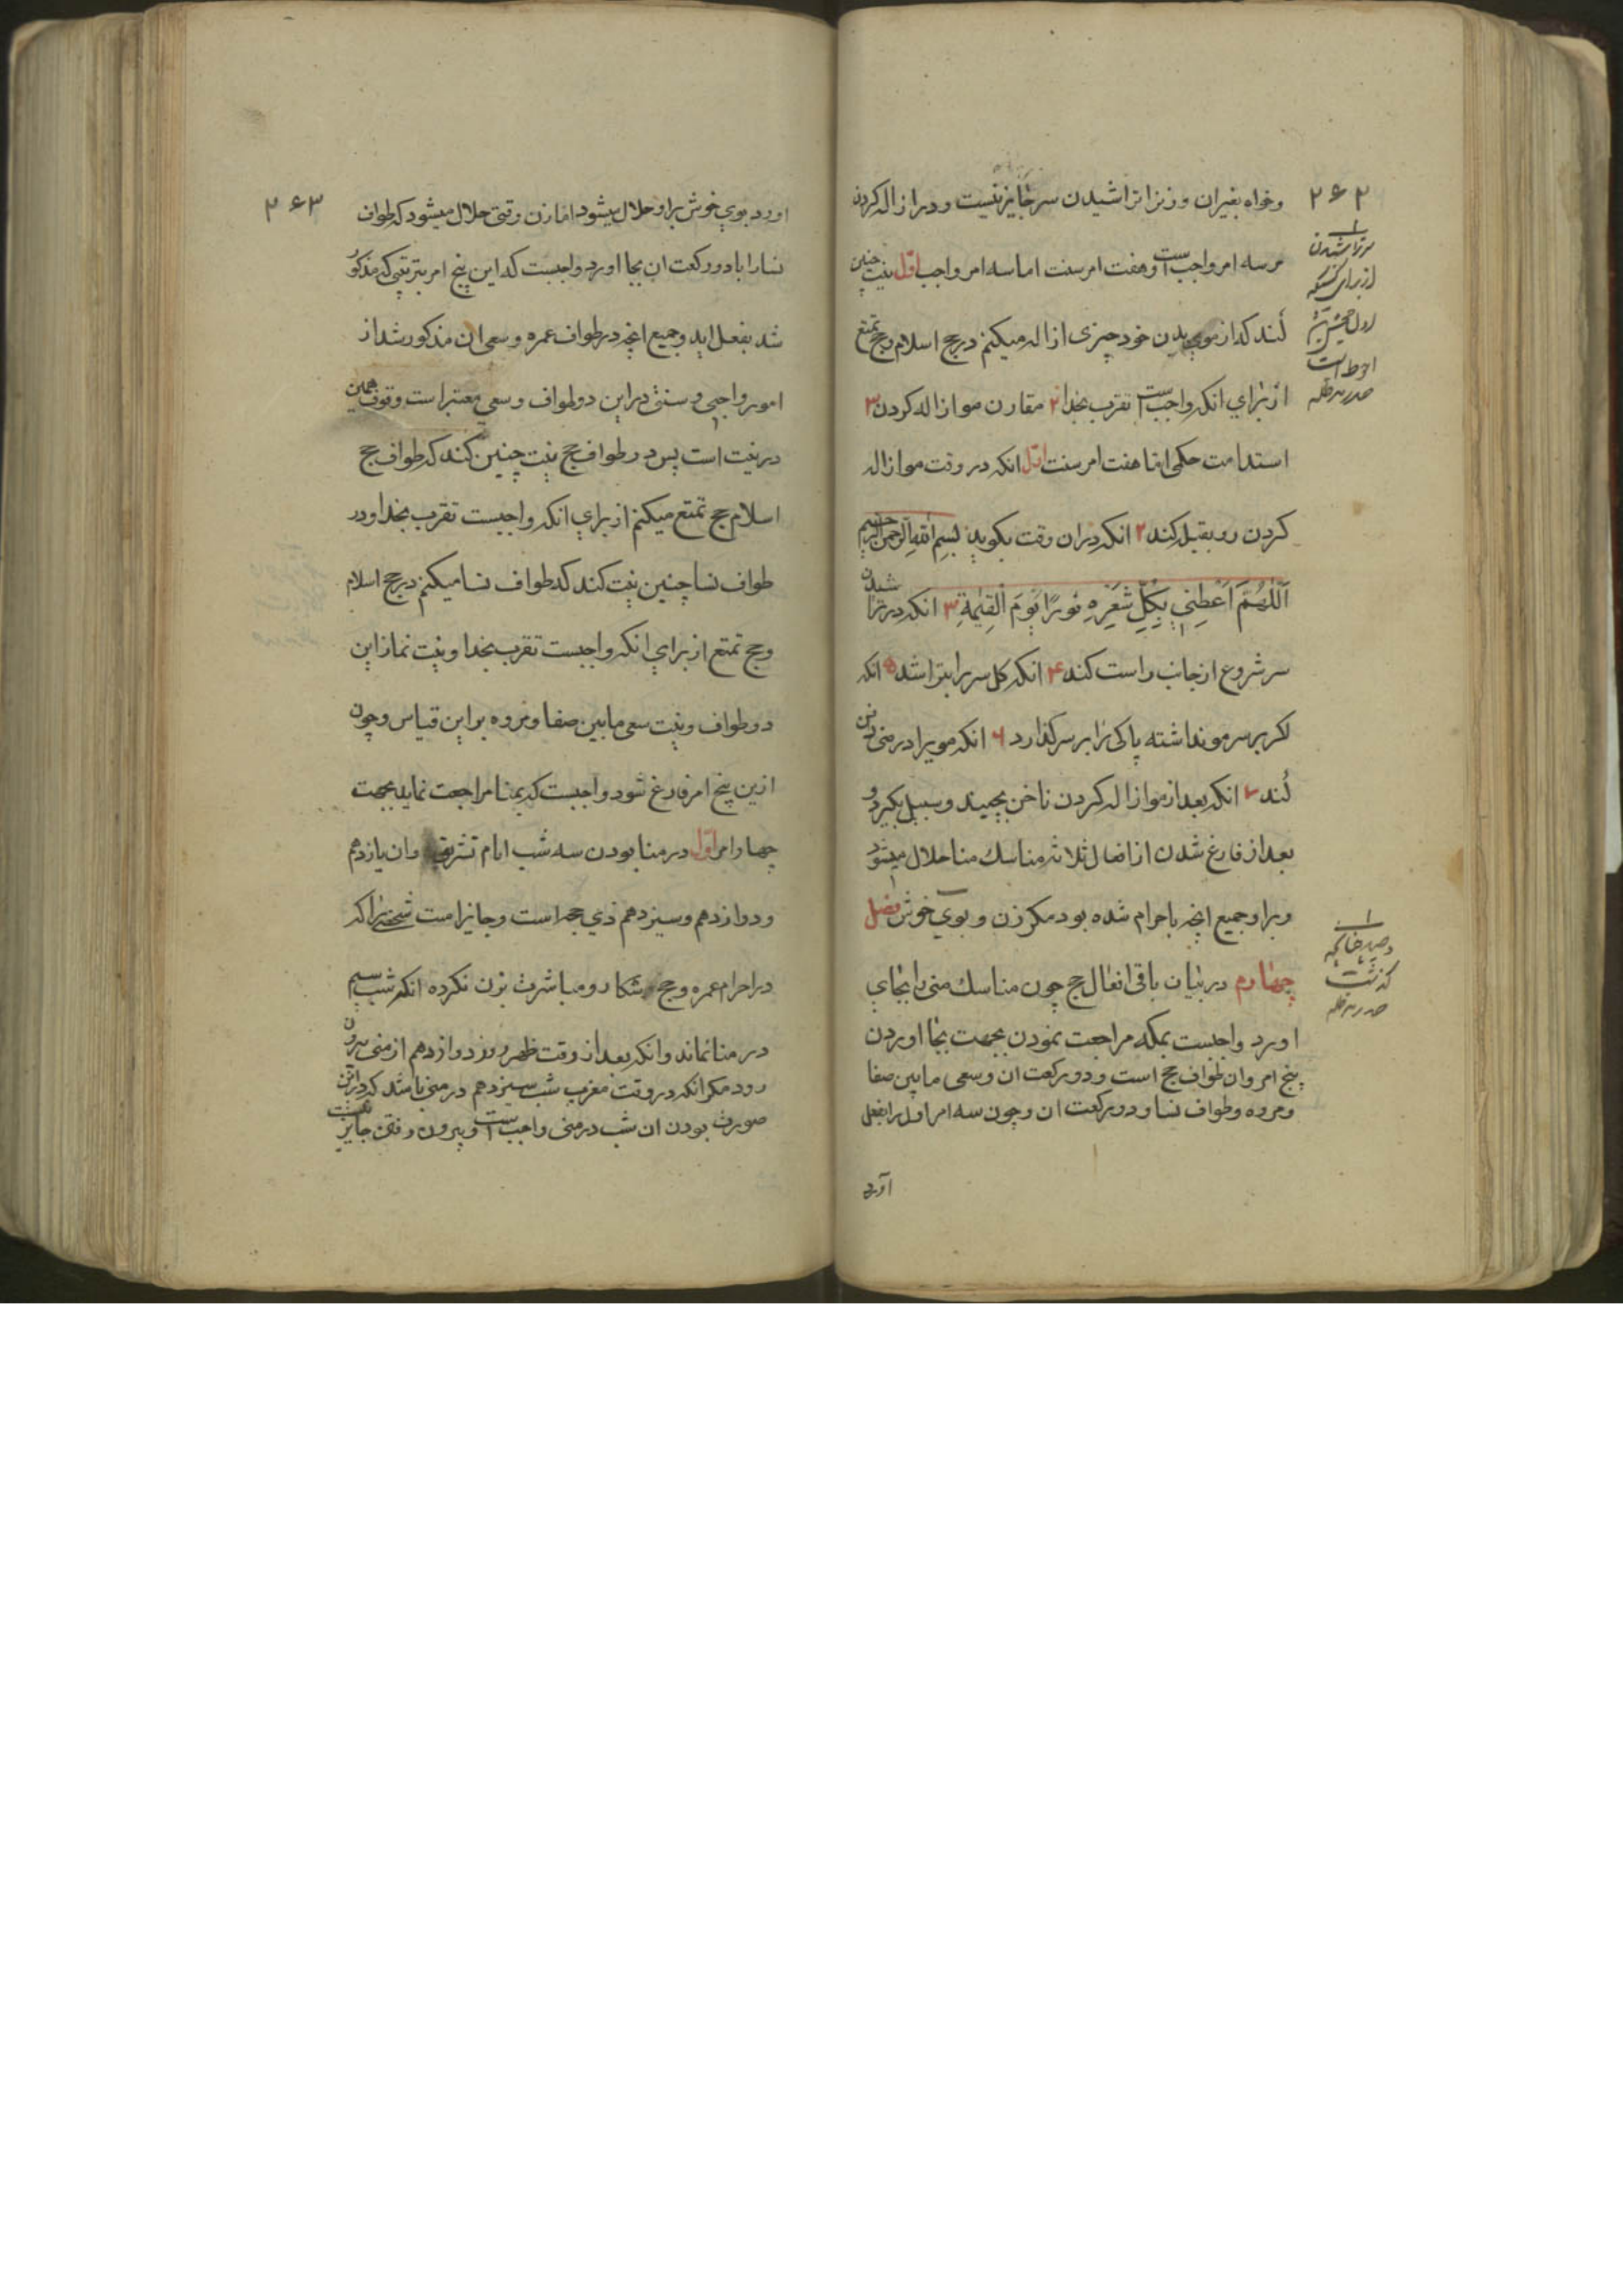 ۲۶۲
وخواه بغیران وزنرا تراشیدن سر جایز نیست و در ازاله کردن
مو سه امر واجب است وهفت امر سنت اما سه امر واجب اول نیت چنین
کند که از موی بدن خود چیزی ازاله میکنم در حج اسلام حج تمتع
از برای انکه واجب است تقرب بخدا ۲ مقارن مو ازاله کردن ۳
استدامت حکمی اما هفت امر سنت اول انکه در وقت مو ازاله
کردن رو بقبله کند ۲ انکه دران وقت بکوید بِسمِ اللهِ الرَّحمنِ الرَّحیم
اَللّٰهُمَّ اَعْطِنی بِکُلِّ شَعْرِهِ نُورًا یَومَ الْقِیٰمَةِ ۳ انکه در تراشیدن
سر شروع از جانب راست کند ۴ انکه کل سر را بتراشد ۵ انکه
اکر بر سر مو نداشته پاکی را بر سر کذارد ۶ انکه مویرا در منی دفن
کند ۷ انکه بعد از مو ازاله کردن ناخن بچیند و سبیل بکیرد و
بعد از فارغ شدن از افعال ثلاثه مناسك منا حلال میشود
وبراو جمیع انچه باحرام شده بود مکر زن و بوی خوش فصل
چهارم در بیان باقی افعال حج چون مناسك منی را بجای
اورد واجبست بمکه مراجعت نمودن بجهت بجا اوردن
پنج امر وان طواف حج است و دو رکعت ان وسعی مابین صفا
ومروه وطواف نسا و دو رکعت ان وچون سه امر اول را بفعل
آورد
سر تراشیدن
از برای کسیکه
اول حجش باشد
احوط است
صدر مد ظله
گذشت
صدر مد ظله
۲۶۳
اورد بوی خوش براو حلال میشود اما زن وقتی حلال میشود که طواف
نسا را با دو رکعت ان بجا اورد واجبست که این پنج امر بترتیبی که مذکور
شد بفعل اید وجمیع انچه در طواف عمره وسعی ان مذکور شد از
امور واجبی وسنتی در این دو طواف وسعی معتبر است وتفاوت همین
در نیت است پس در طواف حج نیت چنین کند که طواف حج
اسلام حج تمتع میکنم از برای انکه واجبست تقرب بخدا و در
طواف نسا چنین نیت کند که طواف نسا میکنم در حج اسلام
وحج تمتع از برای انکه واجبست تقرب بخدا ونیت نماز این
دو طواف ونیت سعی مابین صفا ومروه براین قیاس وچون
ازین پنج امر فارغ شود واجبست که بمنا مراجعت نماید بجهت
چهار امر اول در منا بودن سه شب ایام تشریق وان یازدهم
ودوازدهم وسیزدهم ذی حجه است وجایز است شخصی را که
در احرام عمره وحج شکار و مباشرت بزن نکرده انکه شب سیم
در منا نماند وانکه بعد از وقت ظهر روز دوازدهم از منی بیرون
رود مکر انکه در وقت مغرب شب سیزدهم در منی باشد که در این
صورت بودن ان شب در منی واجب است و بیرون رفتن جایز نیست